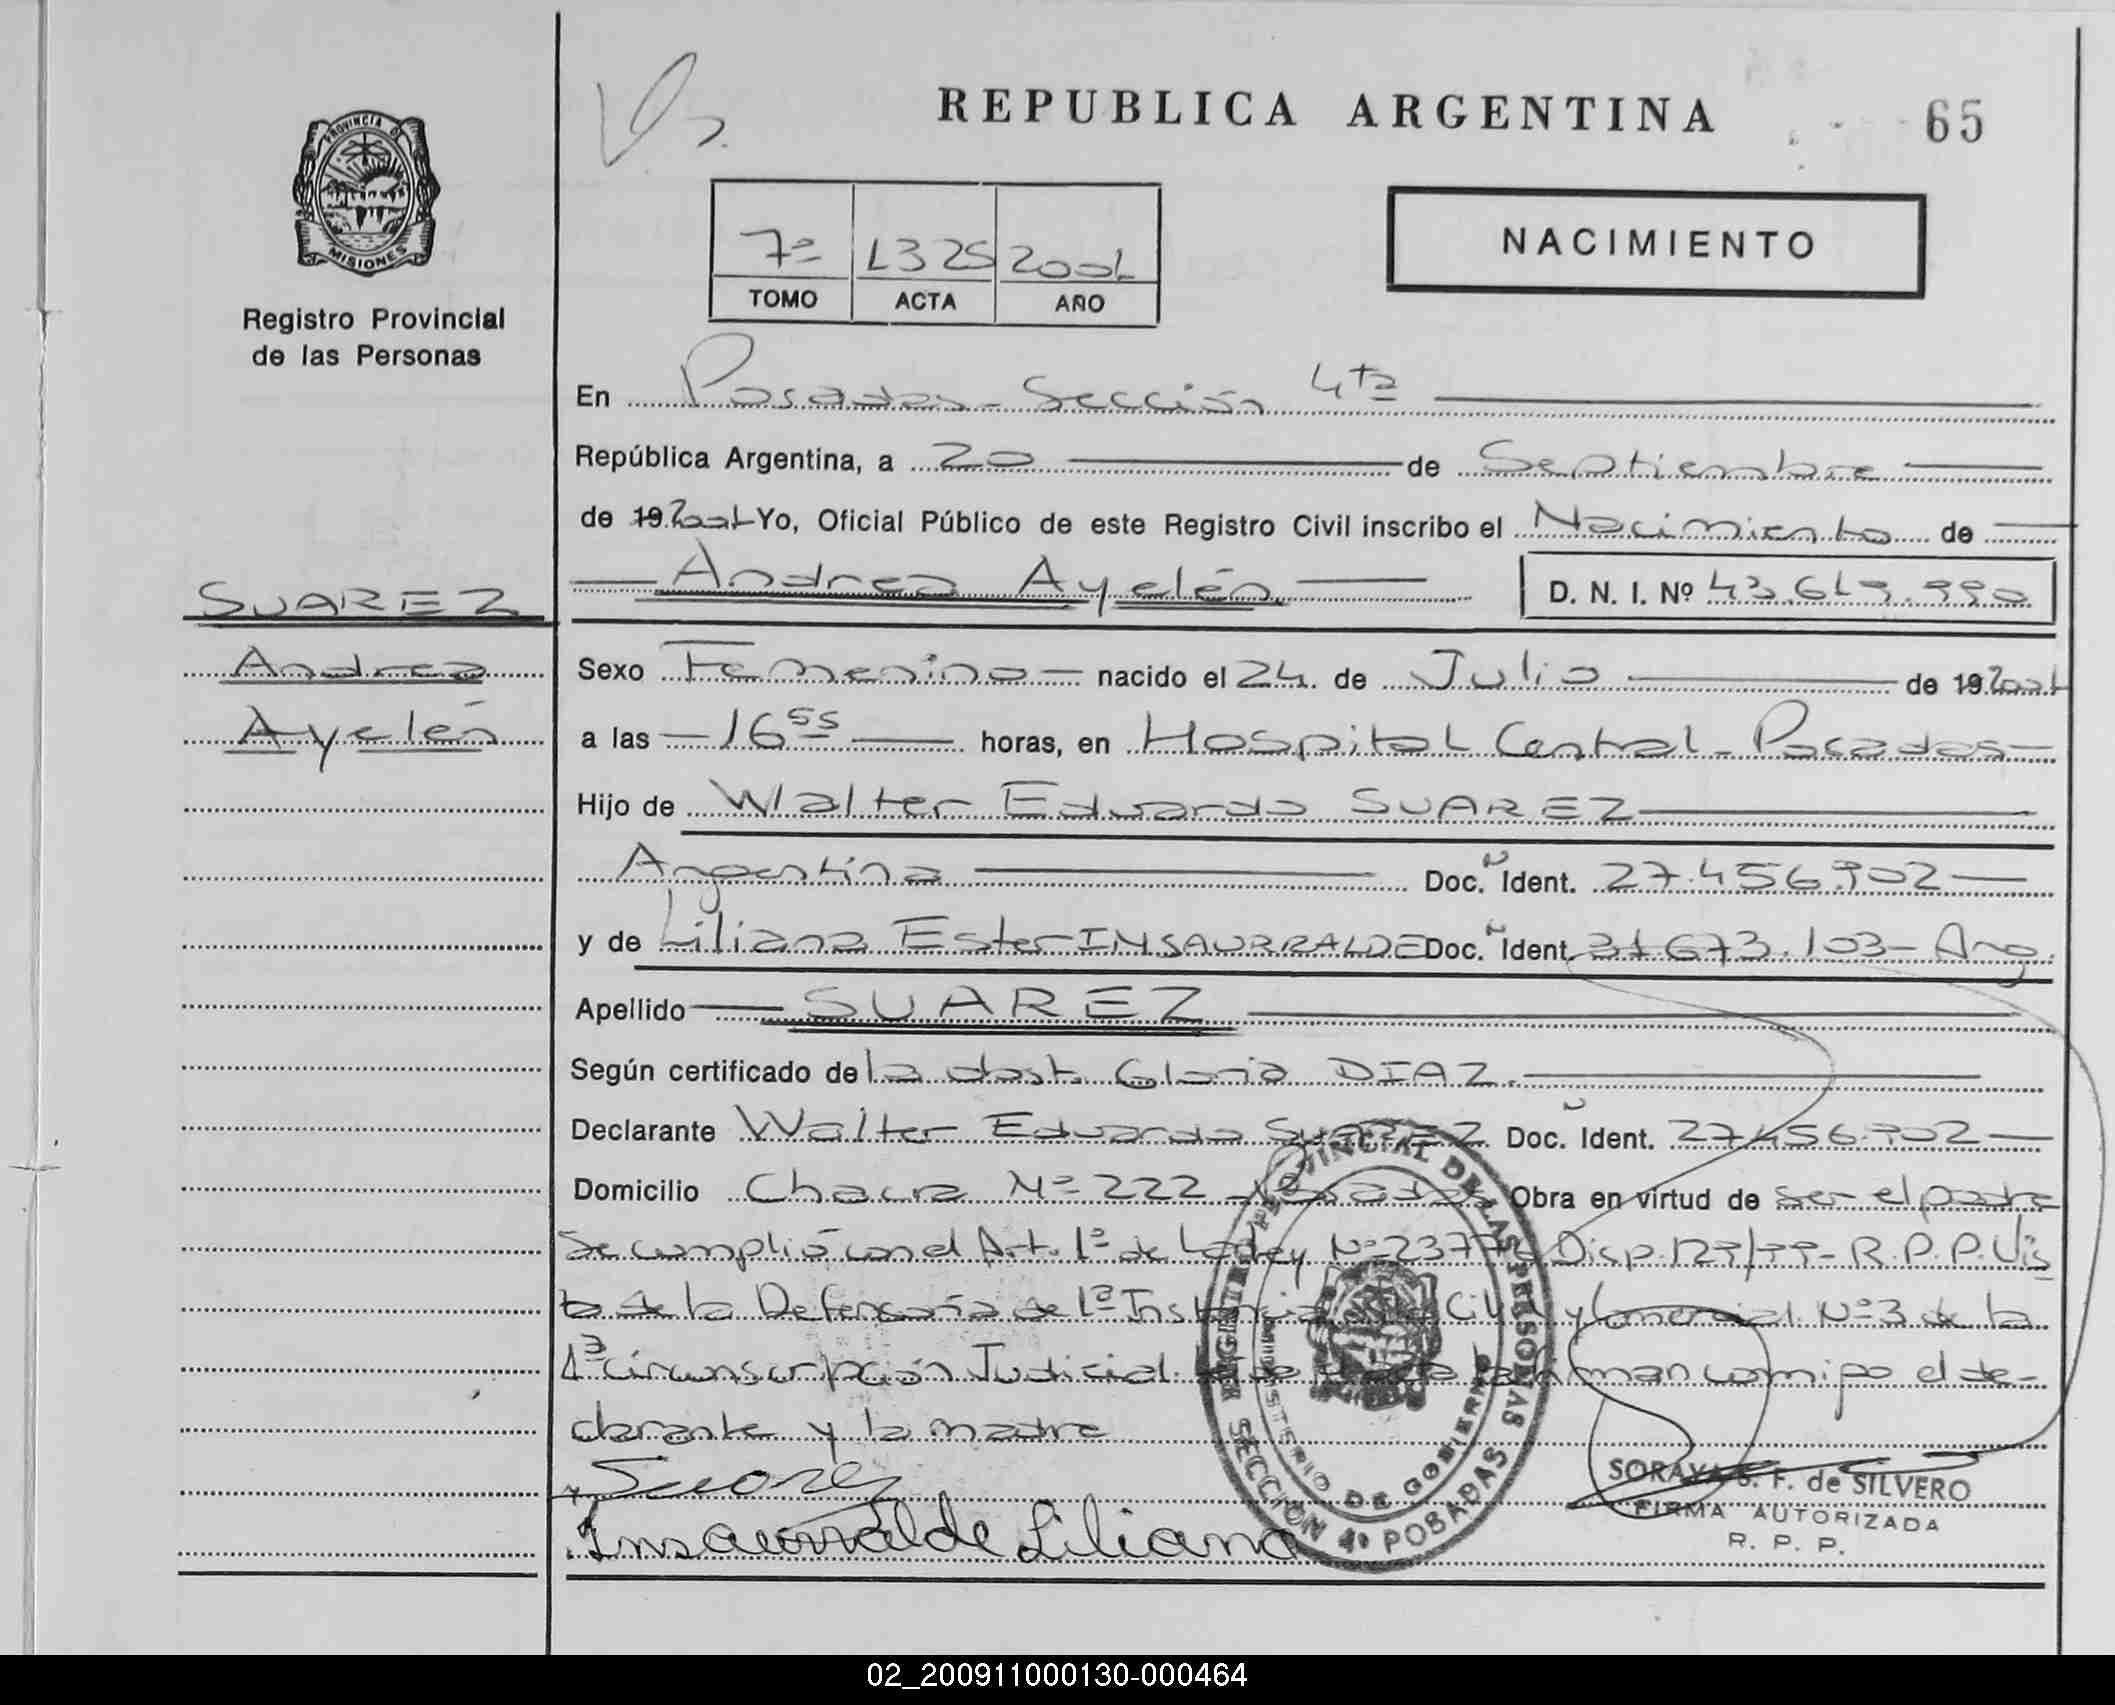 REPUBLICA ARGENTINA
65
PROVINCIA DE
MISIONES
Registro Provincial
de las Personas
NACIMIENTO
7º 1325 2001
TOMO ACTA AÑO
En Posadas - Sección 4ta
República Argentina, a 20 de Septiembre
de 19 2001 Yo, Oficial Público de este Registro Civil inscribo el Nacimiento de
Andrea Ayelén D. N. I. Nº 43.619.990
SUAREZ
Andrea
Ayelén
Sexo Femenino nacido el 24 de Julio de 19 2001
a las 16 55 horas, en Hospital Central - Posadas
Hijo de Walter Eduardo SUAREZ
Argentina Doc. Ident. 27.456.902
y de Liliana Ester INSAURRALDE Doc. Ident. 31.673.103 - Arg.
Apellido SUAREZ
Según certificado de la obst. Gloria DIAZ.
Declarante Walter Eduardo SUAREZ Doc. Ident. 27.456.902
Domicilio Chacra Nº 222 Posadas Obra en virtud de ser el padre
Se cumplió con el Art. 1º de la Ley Nº 2377 Disp. 129/99 - R.P.P. Vis
ta de la Defensoría de 1ª Instancia Civil y Comercial Nº 3 de la
1ª circunscripción Judicial firman conmigo el de-
clarante y la madre
Suarez
Insaurralde Liliana
REGISTRO PROVINCIAL DE LAS PERSONAS
MINISTERIO DE GOBIERNO
SECCION 4ª POSADAS
SORAYA S. F. de SILVERO
FIRMA AUTORIZADA
R. P. P.
02_200911000130-000464